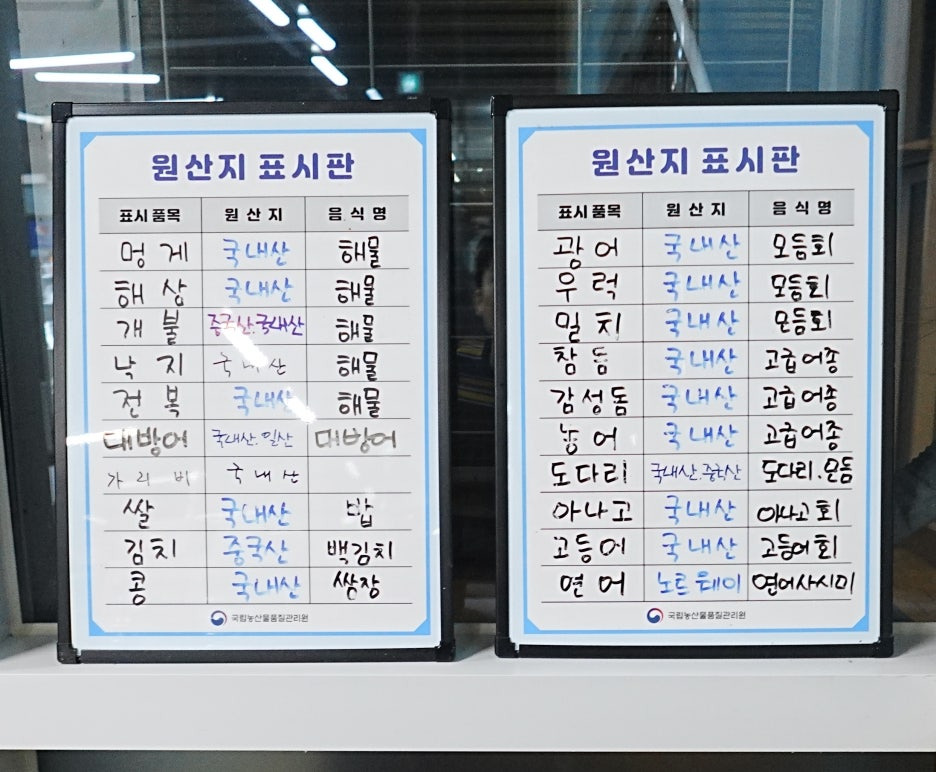 원산지 표시판
표시품목 원산지 음식명
멍게 국내산 해물
해삼 국내산 해물
개불 중국산.국내산 해물
낙지 국내산 해물
전복 국내산 해물
대방어 국내산.일산 대방어
가리비 국내산
쌀 국내산 밥
김치 중국산 백김치
콩 국내산 쌈장
국립농산물품질관리원
원산지 표시판
표시품목 원산지 음식명
광어 국내산 모듬회
우럭 국내산 모듬회
밀치 국내산 모듬회
참돔 국내산 고급어종
감성돔 국내산 고급어종
농어 국내산 고급어종
도다리 국내산.중국산 도다리.모듬
아나고 국내산 아나고회
고등어 국내산 고등어회
연어 노르웨이 연어사시미
국립농산물품질관리원